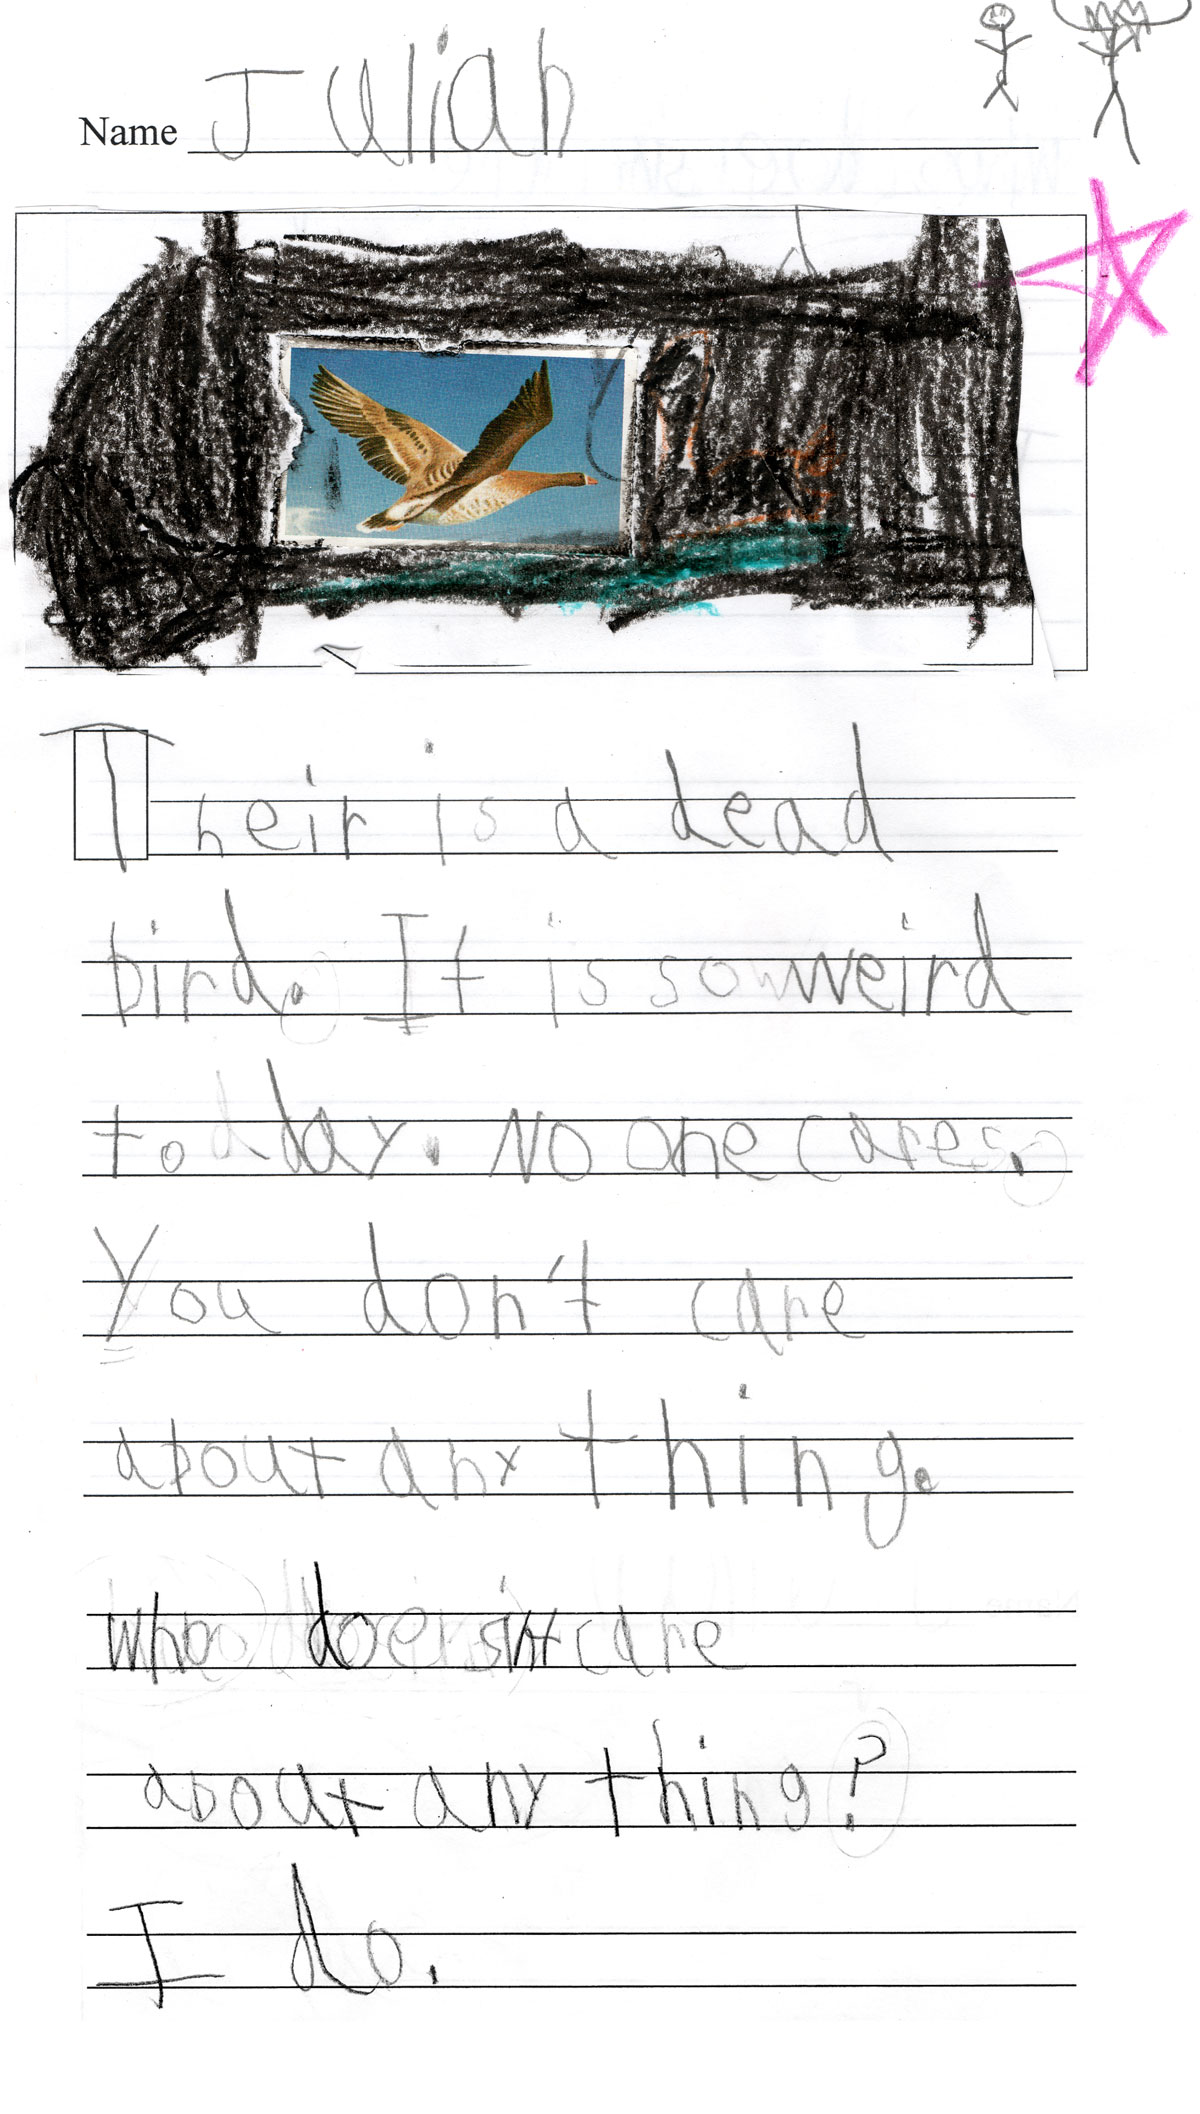 Name Julian
Their is a dead
bird. It is so weird
today. No one cares.
You don't care
about any thing.
who doesn't care
about any thing?
I do.